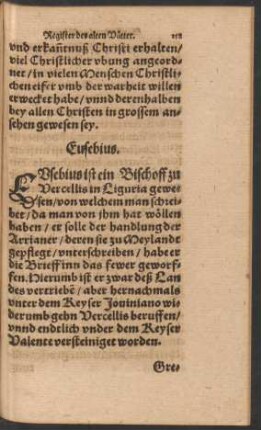 Register der alten Vätter.
vnd erkañtnuß Christi erhalten/
viel Christlicher vbung angeord-
net/ in vielen Menschen Christli-
chen eifer vmb der warheit willen
erwecket habe/ vnnd derenhalben
bey allen Christen in grossem an-
sehen gewesen sey.
Eusebius.
EVsebius ist ein Bischoff zu
Vercellis in Liguria gewe-
sen/ von welchem man schrei-
bet/ da man von jhm hat wöllen
haben/ er solle der handlung der
Arrianer/ deren sie zu Meylandt
gepflegt/ vnterschreiben/ hab er
die Brieff inn das fewer geworf-
fen. Hierumb ist er zwar deß Lan
des vertriebẽ/ aber hernachmals
vnter dem Keyser Jouiniano wi-
derumb gehn Vercellis beruffen/
vnnd endtlich vnder dem Keyser
Valente versteiniget worden.
Gre-